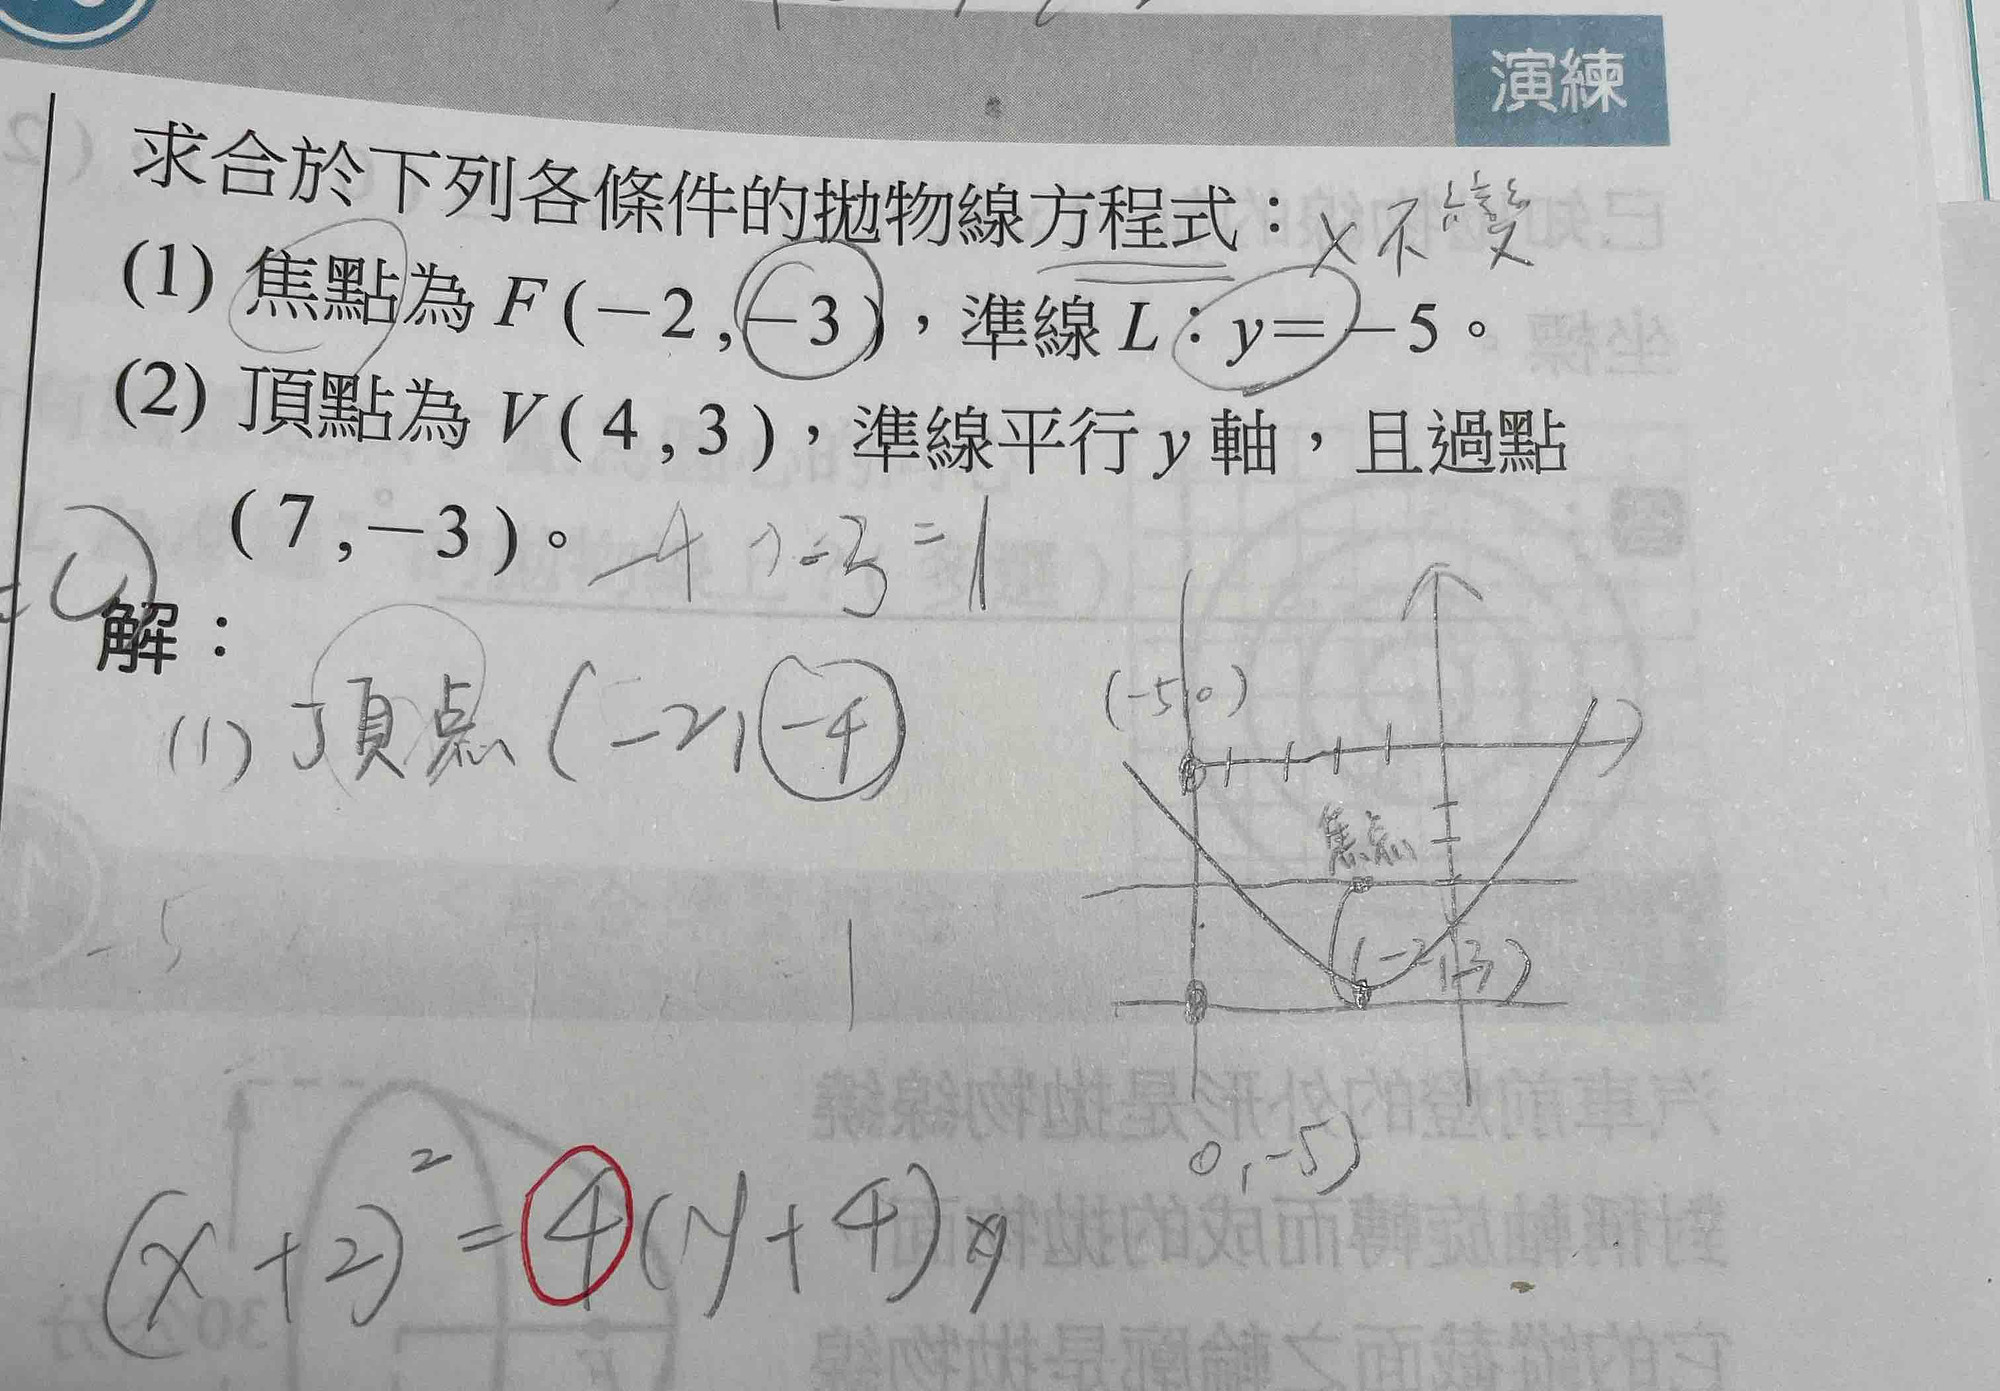 演練
求合於下列各條件的拋物線方程式：x不變
(1) 焦點為 F(-2,-3)，準線 L：y=-5。
(2) 頂點為 V(4,3)，準線平行 y 軸，且過點
(7,-3)。
=1
解：
(1) 頂点 (-2,-4)
(-5,0)
焦点
(-2,-3)
-5
1
0,-5)
(x+2)²=4(y+4)